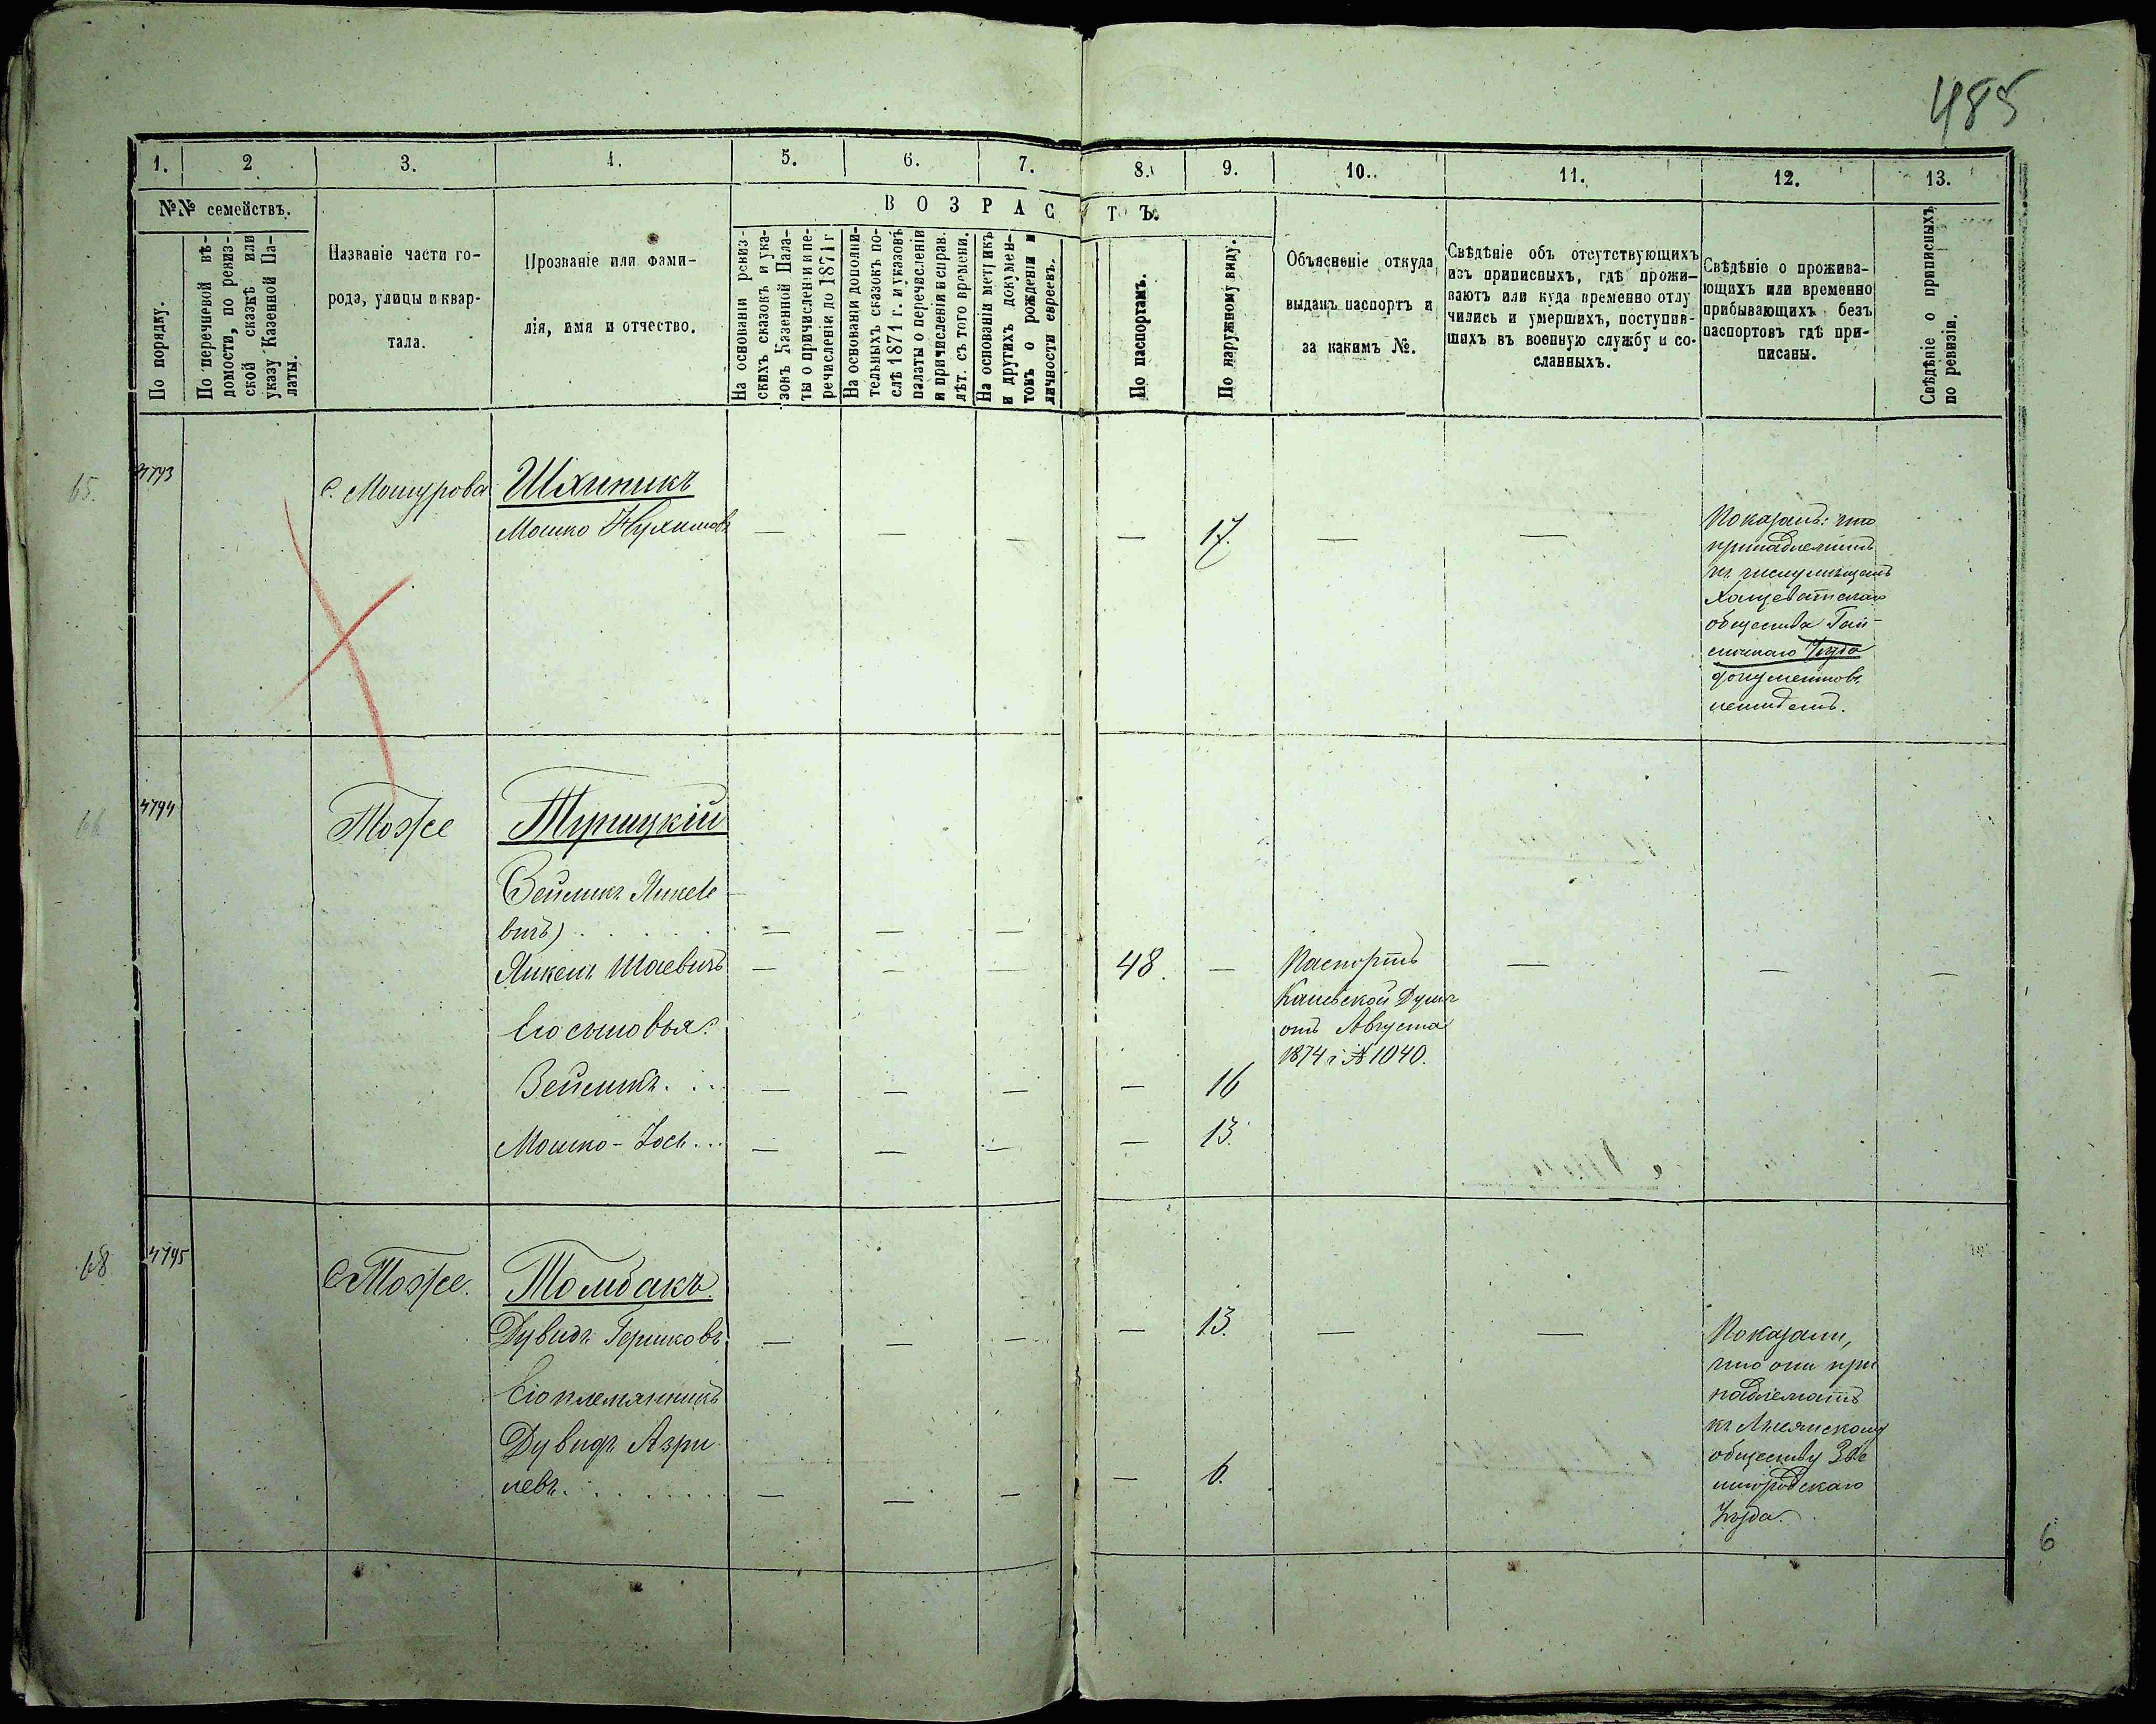 485
1. 2 3. 4. 5. 6. 7. 8. 9. 10. 11. 12. 13.
№№ семействъ.
По порядку.
По перечневой вѣ-
домости, по ревиз-
ской сказкѣ или
указу Казенной Па-
латы.
Названіе части го-
рода, улицы и квар-
тала.
Прозваніе или фами-
лія, имя и отчество.
ВОЗРАСТЪ.
На основаніи ревиз-
скихъ сказокъ и ука-
зовъ Казенной Пала-
ты о причисленіи и пе-
речисленіи до 1871 г
На основаніи дополни-
тельныхъ сказокъ по-
слѣ 1871 г. и указовъ
палаты о перечисленіи
и причисленіи и справ.
лѣт. съ того времени.
На основаніи метрикъ
и другихъ докумен-
товъ о рожденіи и
личности евреевъ.
По паспортамъ.
По наружному виду.
Объясненіе откуда
выданъ паспортъ и
за какимъ №.
Свѣдѣніе объ отсутствующихъ
изъ приписныхъ, гдѣ прожи-
ваютъ или куда временно отлу
чились и умершихъ, поступив-
шихъ въ военную службу и со-
сланныхъ.
Свѣдѣніе о прожива-
ющихъ или временно
прибывающихъ безъ
паспортовъ гдѣ при-
писаны.
Свѣдѣніе о приписныхъ
по ревизіи.
65. 4793 с. Мошурова Шхиникъ
Мошко Нухимовъ — — — — 17. — —
Показалъ: что
принадлежитъ
къ числу мѣщанъ
Хащеватскаго
общества Гай-
синскаго Уѣзда
документовъ
неимѣетъ.
4794 Тоже Туришукій
Зейликъ Янкеле
вичъ) . . . — — —
Янкель Шаевичъ — — 48. — — — —
Паспортъ
Каневской Думы
отъ Августа
1874 г. № 1040.
Его сыновья:
Зейликъ. . . . — — — — 16
Мошко-Іось... — — — — 13.
68 4795 С Тоже. Томбакъ
Дувидъ Гершковъ — — — — 13. — —
Его племянникъ
Дувидъ Азри
левъ. . . . . . . — — — — 6.
Показали,
что они при
надлежатъ
къ Лысянскому
обществу Зве
нигородскаго
Уѣзда.
6